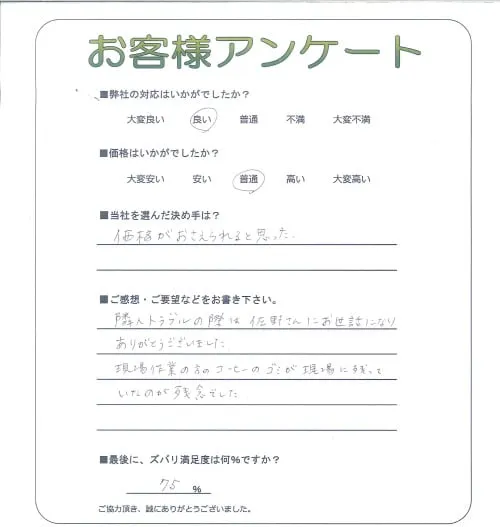 お客様アンケート
■弊社の対応はいかがでしたか？
大変良い 良い 普通 不満 大変不満
■価格はいかがでしたか？
大変安い 安い 普通 高い 大変高い
■当社を選んだ決め手は？
価格がおさえられると思った.
■ご感想・ご要望などをお書き下さい。
隣人トラブルの際は佐野さんにお世話になり
ありがとうございました.
現場作業の方のコーヒーのゴミが現場に残って
いたのが残念でした
■最後に、ズバリ満足度は何%ですか？
75 %
ご協力頂き、誠にありがとうございました。